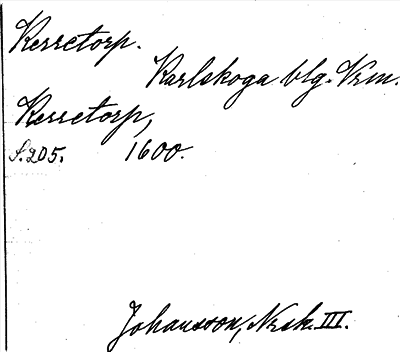 Kerretorp.
Karlskoga blg. Vrm.
Kerretorp,
S. 205. 1600.
Johansson, Nsk. III.